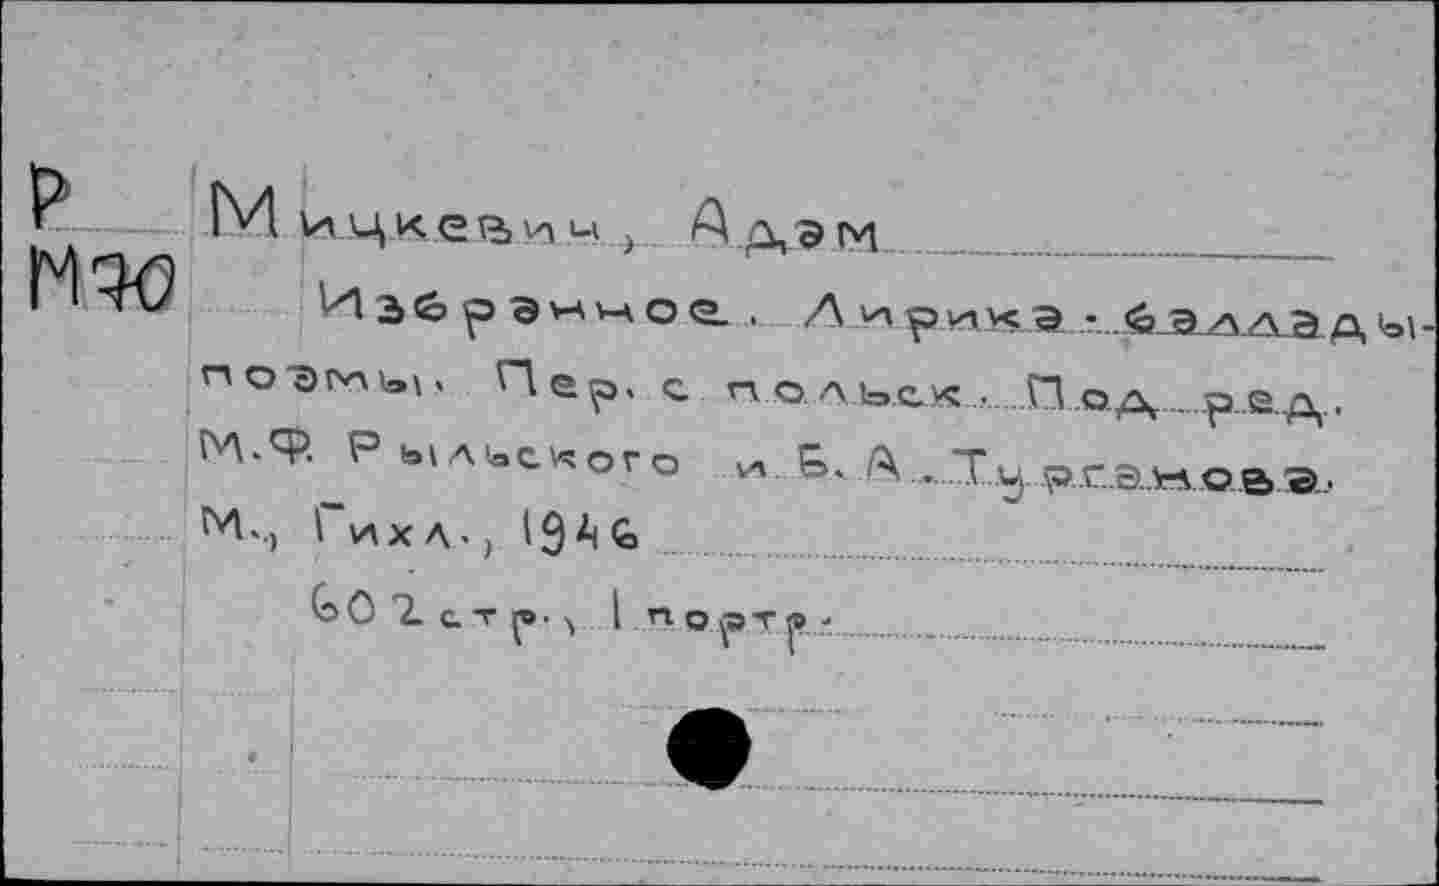 Р
М70
Мицкевич, Адам
Избранное. Лирика - баллады-
поэмы. Пер. с польск. Под ред.
М.Ф. Рыльского и Б.А. Турганова.
М., Гихл., 1946
602 стр., 1 портр.